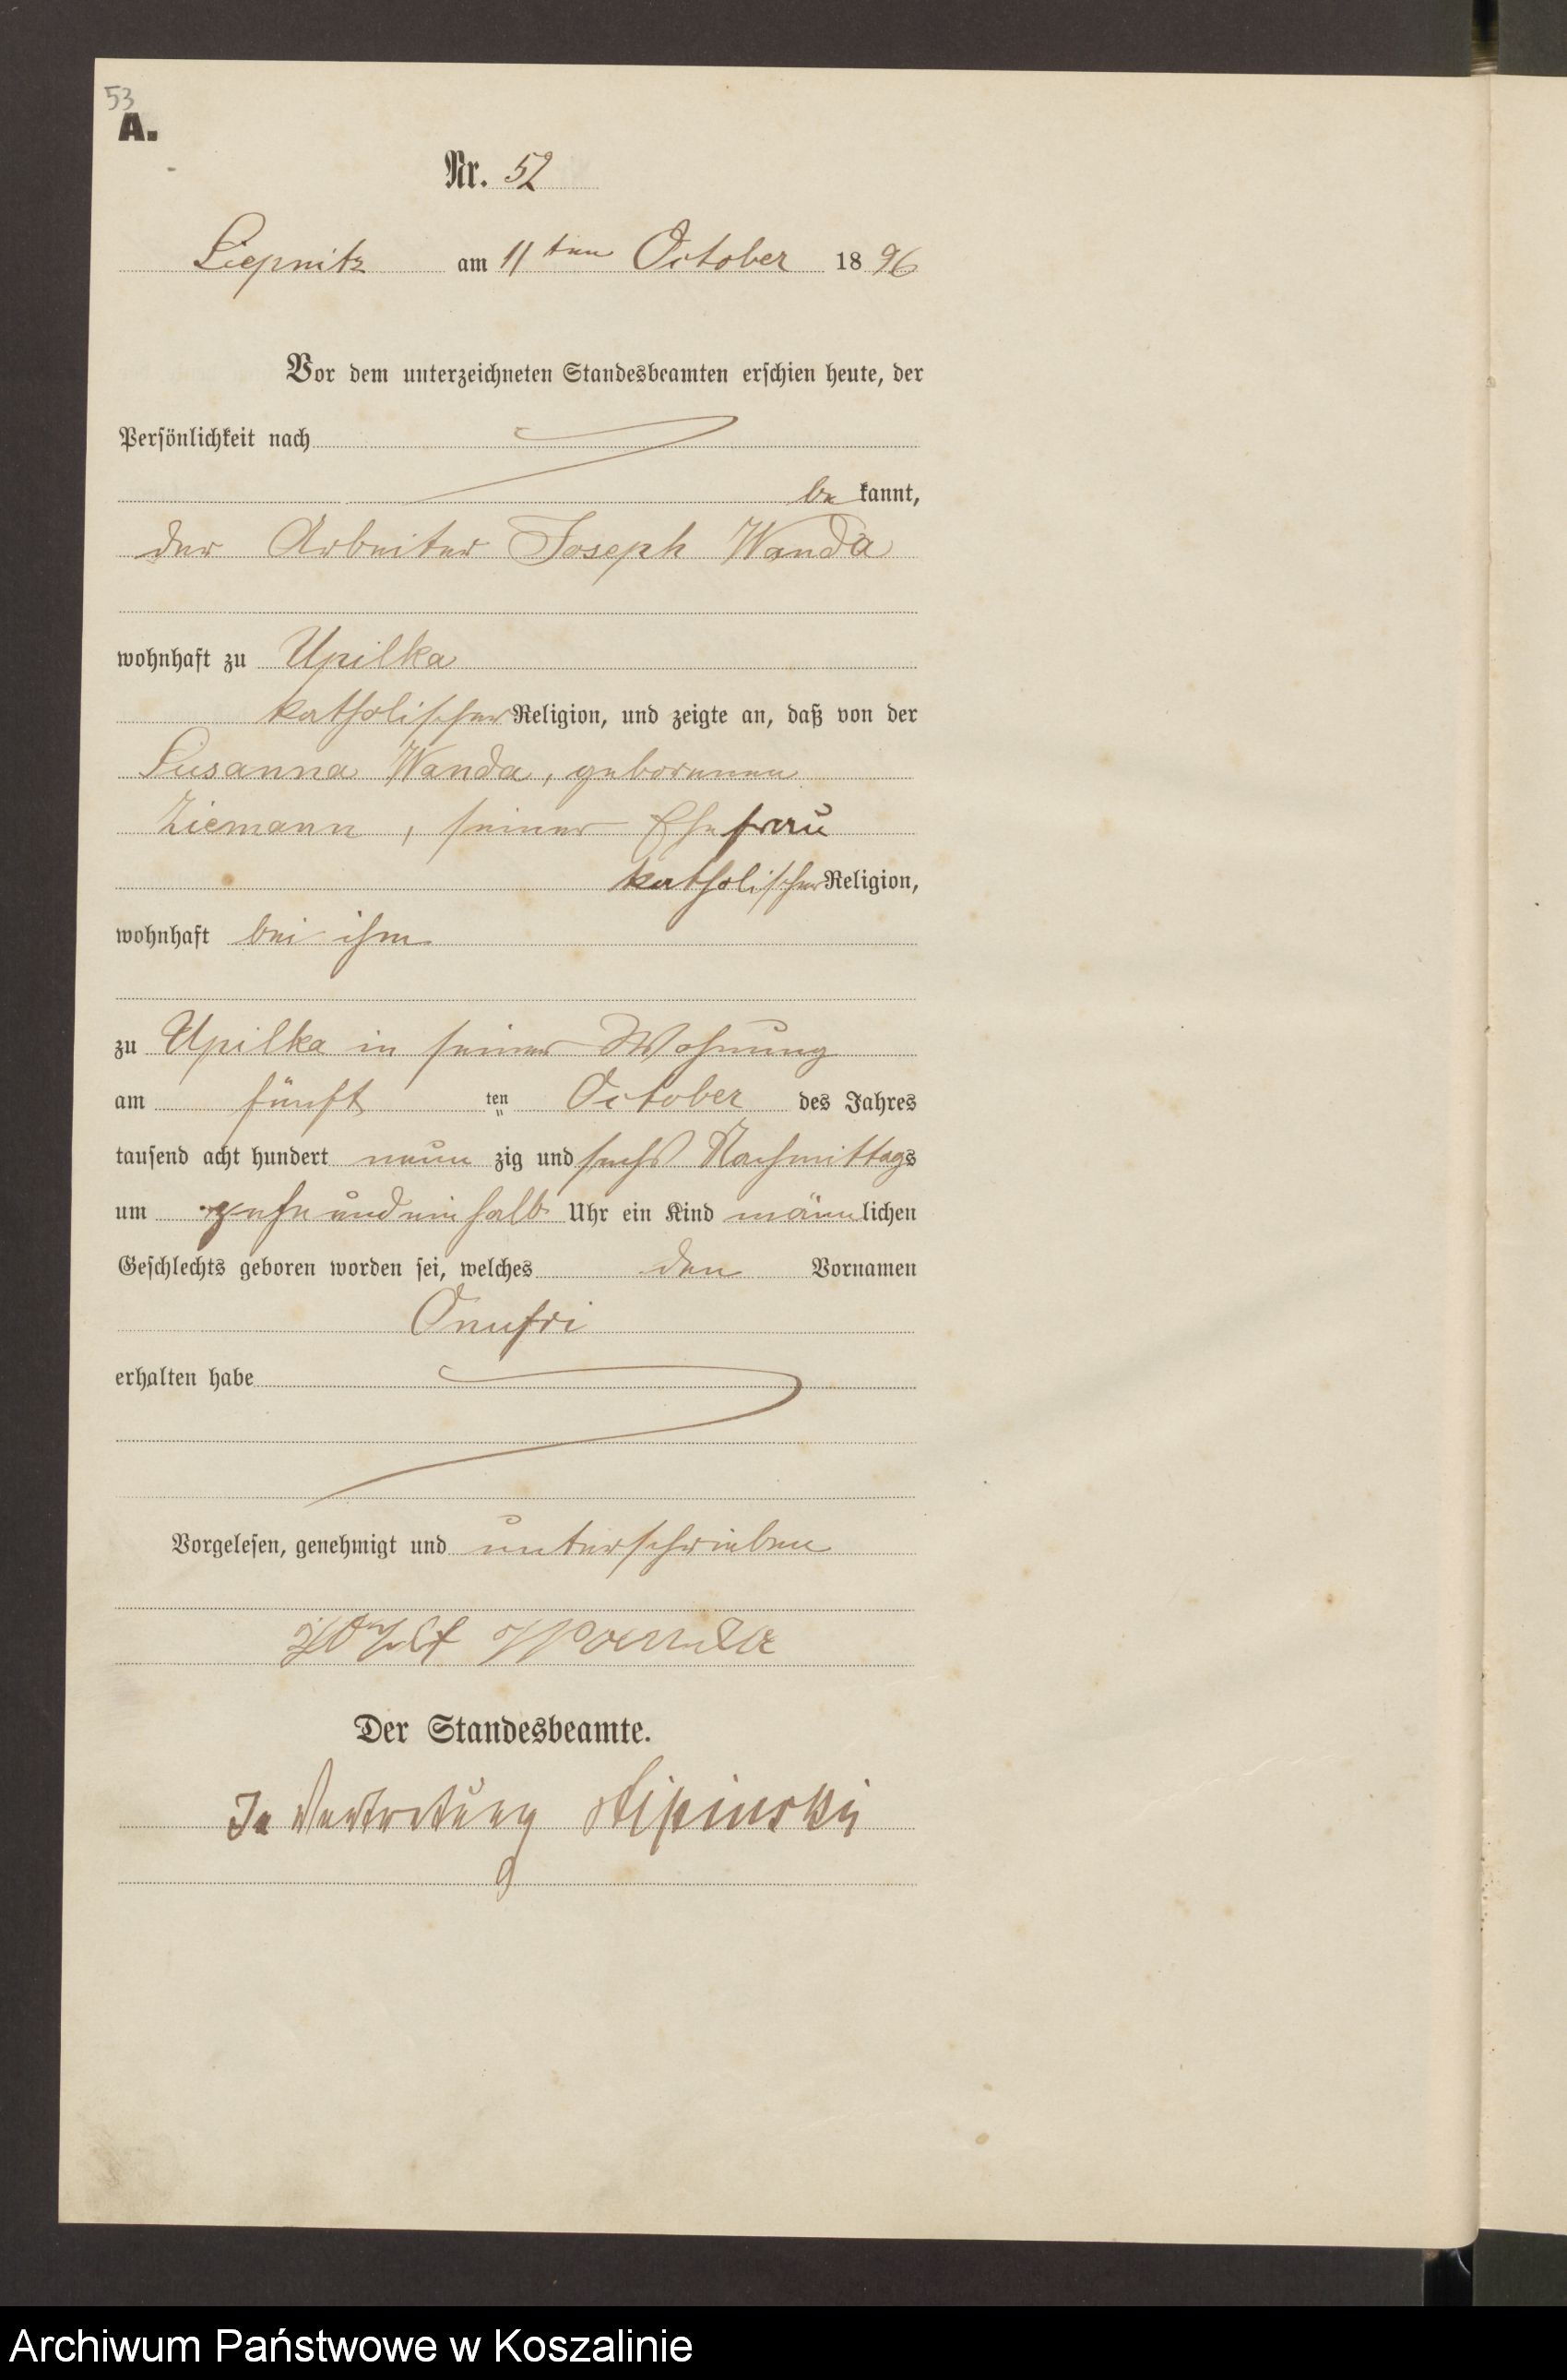 53
A.
Nr. 52
Liepnitz am 11ten October 1896
Vor dem unterzeichneten Standesbeamten erschien heute, der
Persönlichkeit nach
bekannt,
der Arbeiter Joseph Wanda
wohnhaft zu Upilka
katholischer Religion, und zeigte an, daß von der
Susanna Wanda, geborenen
Ziemann, seiner Ehefrau
katholischer Religion,
wohnhaft bei ihm
zu Upilka in seiner Wohnung
am fünften October des Jahres
tausend acht hundert neunzig und sechs Nachmittags
um zehn und ein halb Uhr ein Kind männlichen
Geschlechts geboren worden sei, welches den Vornamen
Onufri
erhalten habe
Vorgelesen, genehmigt und unterschrieben
Wanda
Der Standesbeamte.
In Vertretung Lipinski
Archiwum Państwowe w Koszalinie